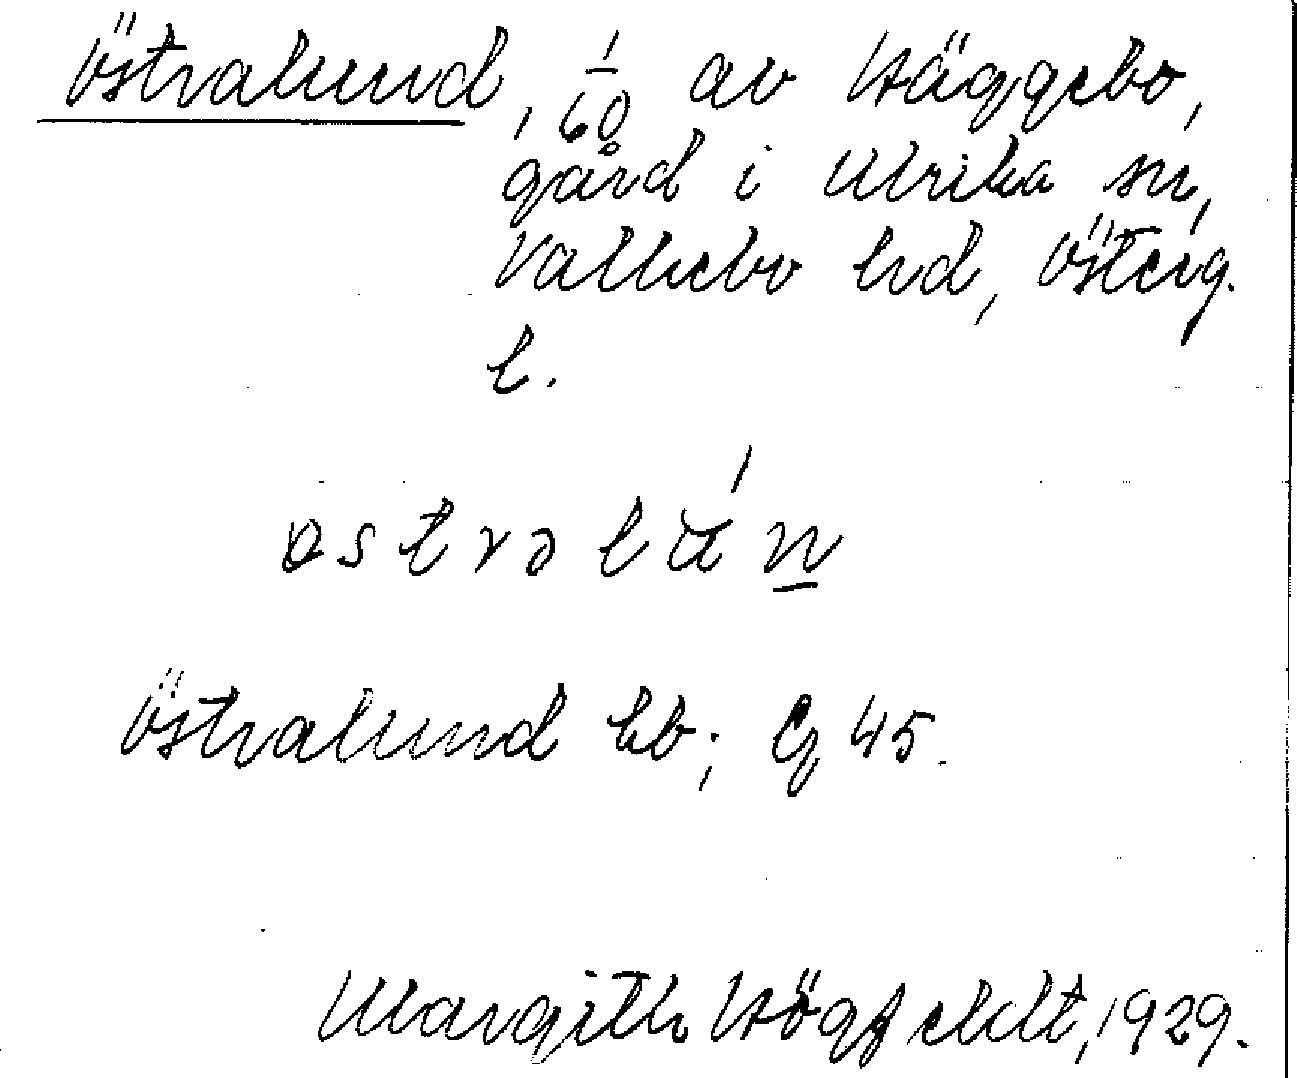 Östralund, 1/60 av Häggebo,
gård i Ulrika sn,
Valkebo hd, Österg.
l.
østrəlún
Östralund kb; Eg 45.
Margith Högfeldt, 1929.